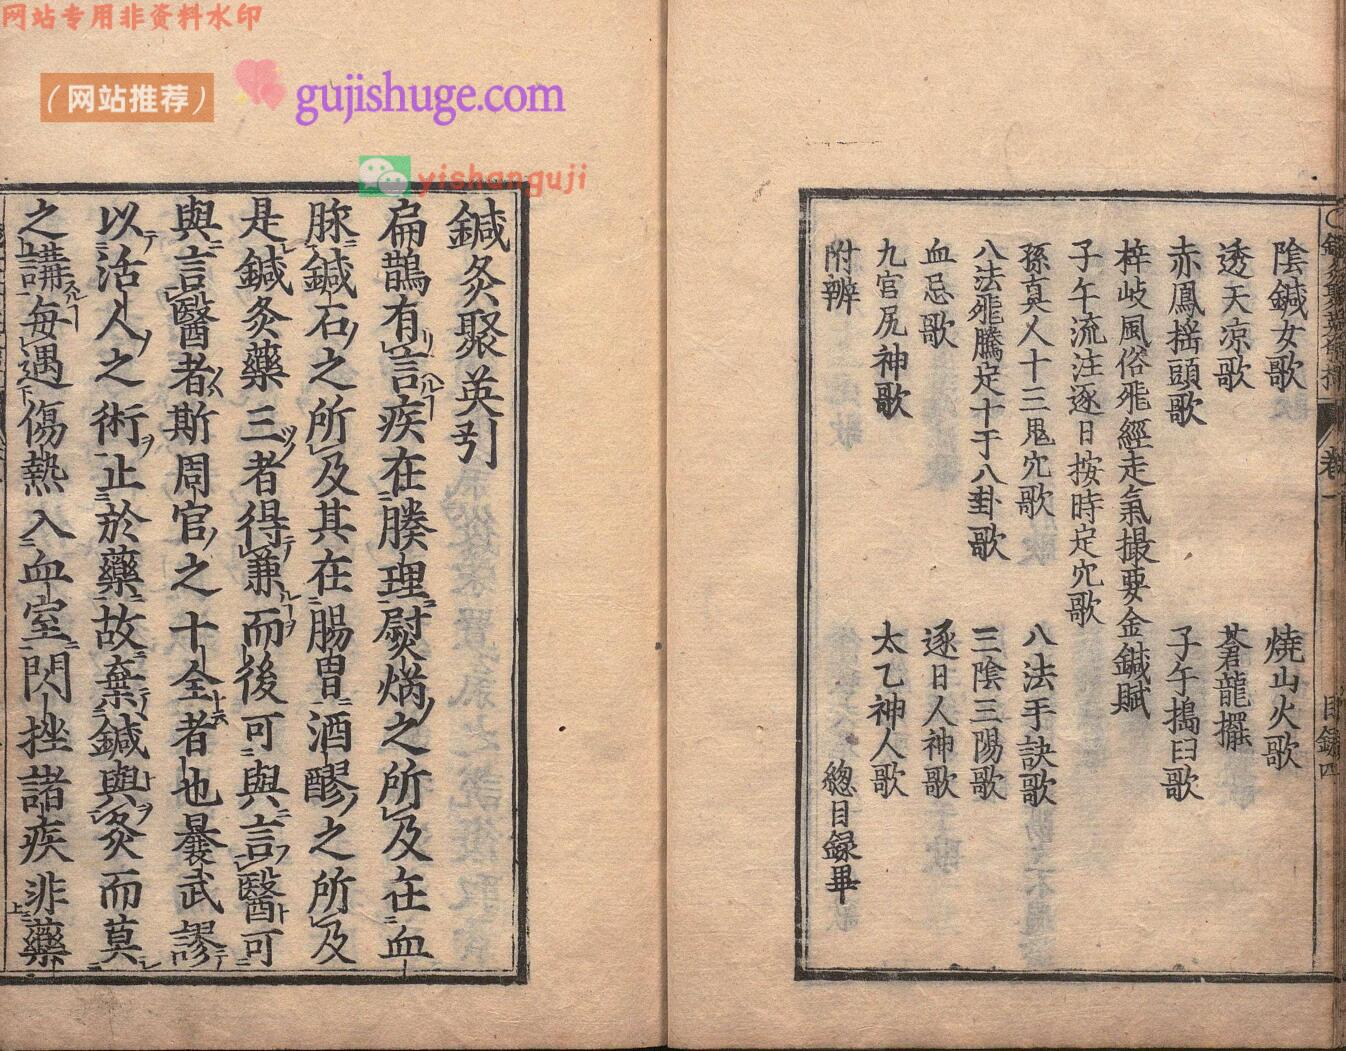 网站专用非资料水印
（网站推荐）
gujishuge.com
yishanguji
陰鍼女歌
燒山火歌
透天凉歌
蒼龍擺
赤鳳摇頭歌
子午搗臼歌
梓岐風俗飛經走氣撮要金鍼賦
子午流注逐日按時定穴歌
孫真人十三鬼穴歌
八法手訣歌
八法飛騰定十干八卦歌
三陰三陽歌
血忌歌
逐日人神歌
九宫尻神歌
太乙神人歌
附辨
總目録畢
目録四
鍼灸聚英引
扁鵲有言疾在腠理熨焫之所及在血
脉鍼石之所及其在腸胃酒醪之所及
是鍼灸藥三者得兼而後可與言醫可
與言醫者斯周官之十全者也曩武謬
以活人之術止於藥故棄鍼與灸而莫
之講每遇傷熱入血室閃挫諸疾非藥